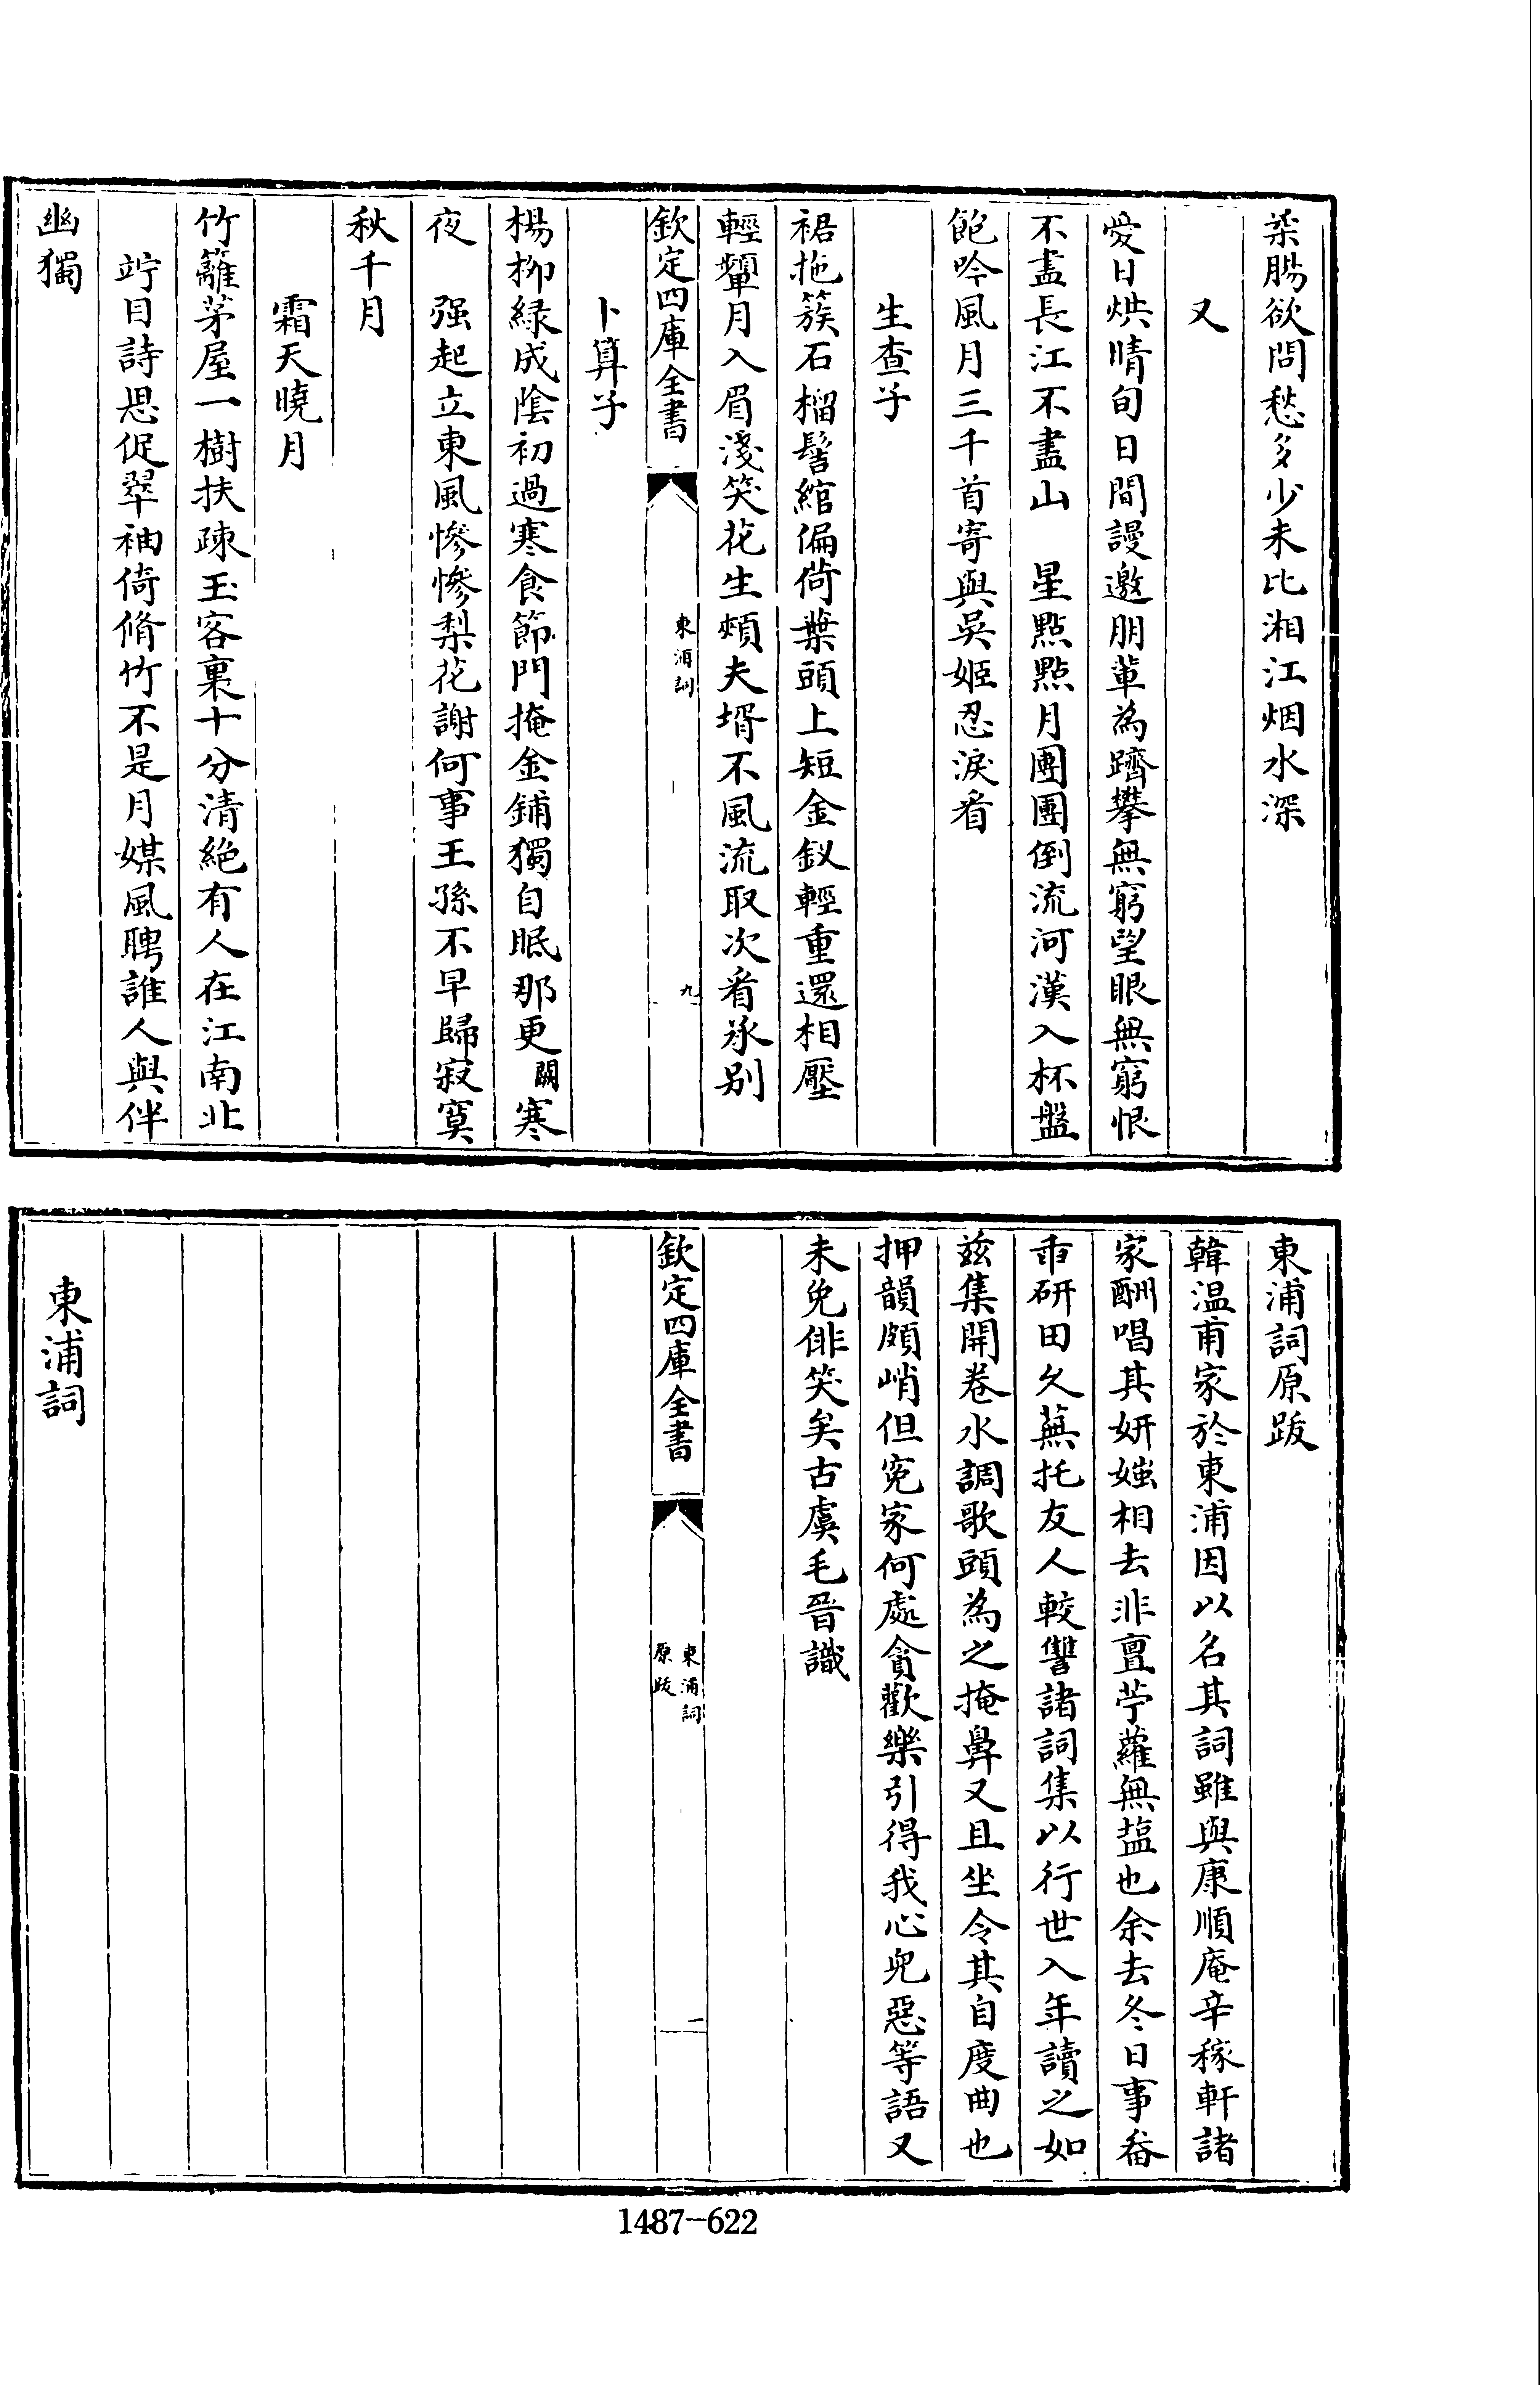 柒腸欲問愁多少未比湘江烟水深
又
愛日烘晴旬日間謾邀朋軰為躋攀無窮望眼無窮恨
不盡長江不盡山　星點點月團團倒流河漢入杯盤
飽吟風月三千首寄與吳姬忍淚看
生查子
裙拖簇石榴髻綰偏荷葉頭上短金釵輕重還相壓
輕顰月入眉淺笑花生頰夫壻不風流取次看承别
欽定四庫全書
東浦詞
九
卜算子
楊柳緑成隂初過寒食節門掩金鋪獨自眠那更闕寒
夜　强起立東風慘慘梨花謝何事王孫不早歸寂寞
秋千月
霜天曉月
竹籬茅屋一樹扶疎玉客裏十分清絶有人在江南北
竚目詩思促翠袖倚脩竹不是月媒風聘誰人與伴
幽獨
東浦詞原跋
韓温甫家於東浦因以名其詞雖與康順庵辛稼軒諸
家酬唱其妍媸相去非亶苧蘿無盐也余去冬日事畚
帀研田久蕪托友人較讐諸詞集以行世入年讀之如
兹集開卷水調歌頭為之掩鼻又且坐令其自度曲也
押韻頗峭但寃家何處貪歡樂引得我心兒惡等語又
未免俳笑矣古虞毛晉識
欽定四庫全書
東浦詞
原跋
一
東浦詞
1487-622